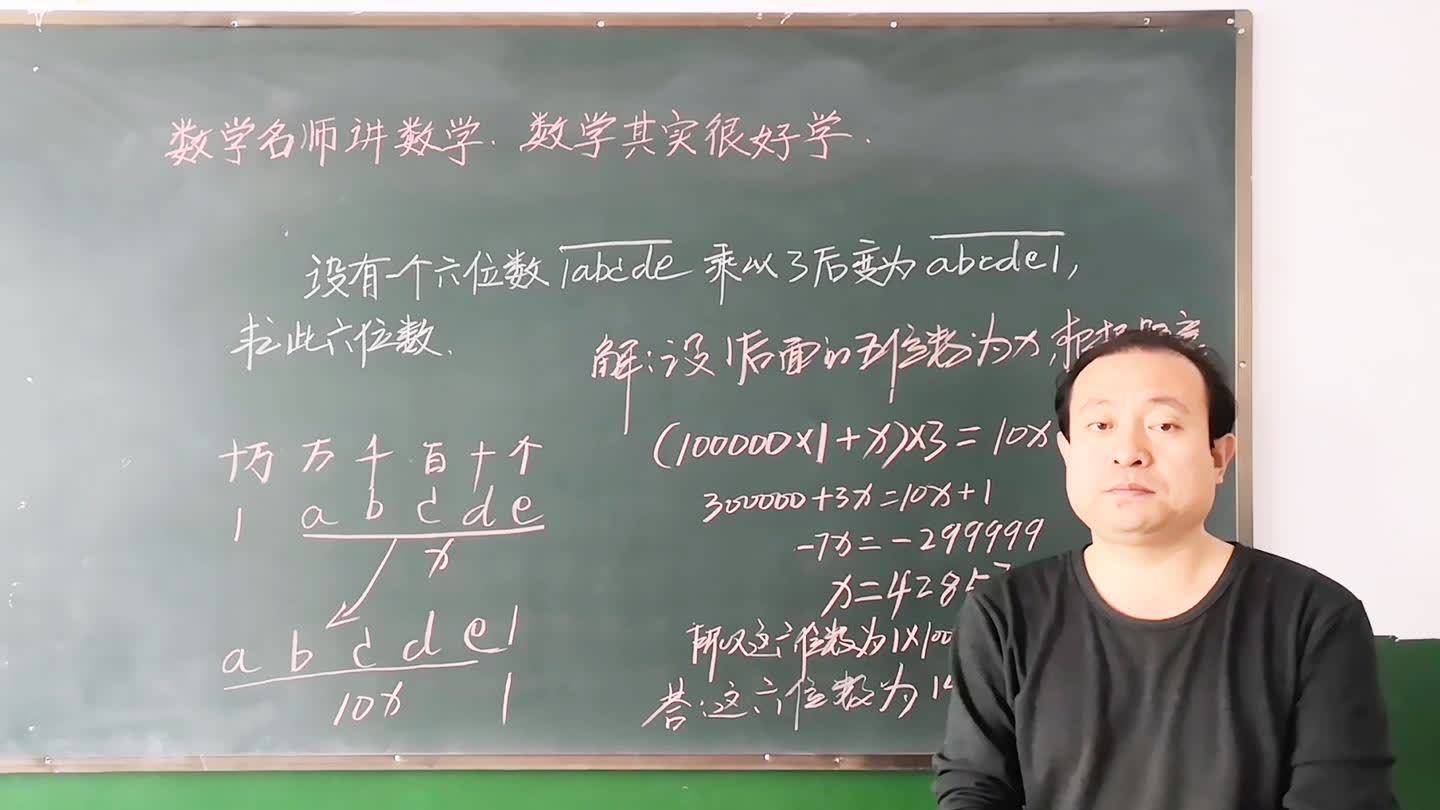 数学名师讲数学.数学其实很好学.
设有一个六位数1abcde乘以3后变为abcde1,
求此六位数.
解:设1后面的五位数为x,
十万 万 千 百 十 个
1 a b c d e
x
a b c d e 1
10x 1
(100000×1+x)×3=10x
300000+3x=10x+1
-7x=-299999
x=4285
所以这六位数为1×100
答:这六位数为14